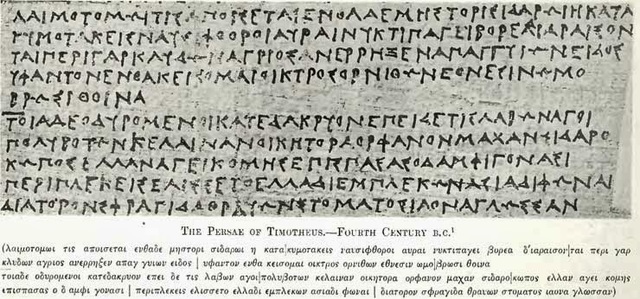 ΛΑΙΜΟΤΟΜΩΙΤΙΣΑΠΟΙΣΕΤΑΙΕΝΘΑΔΕΜΗΣΤΟΡΙΣΙΔΑΡΩΙΗΚΑΤΑ
ΚΥΜΟΤΑΚΕΙΣΝΑΥΣΙΦΘΟΡΟΙΑΥΡΑΙΝΥΚΤΙΠΑΓΕΙΒΟΡΕΑΙΔΙΑΡΑΙΣΟΝ
ΤΑΙΠΕΡΙΓΑΡΚΛΥΔΩΝΑΓΡΙΟΣΑΝΕΡΡΗΞΕΝΑΠΑΓΓΥΙΩΝΕΙΔΟΣ
ΥΦΑΝΤΟΝΕΝΘΑΚΕΙΣΟΜΑΙΟΙΚΤΡΟΣΟΡΝΙΘΩΝΕΘΝΕΣΙΝΩΜΟ
ΒΡΩΣΙΘΟΙΝΑ
ΤΟΙΑΔΕΟΔΥΡΟΜΕΝΟΙΚΑΤΕΔΑΚΡΥΟΝΕΠΕΙΔΕΤΙΣΛΑΒΩΝΑΓΟΙ
ΠΟΛΥΒΟΤΩΝΚΕΛΑΙΝΑΝΟΙΚΗΤΟΡΑΟΡΦΑΝΟΝΜΑΧΑΝΣΙΔΑΡΟ
ΚΩΠΟΣΕΛΛΑΝΑΓΕΙΚΟΜΗΣΕΠΙΣΠΑΣΑΣΟΔΑΜΦΙΓΟΝΑΣΙ
ΠΕΡΙΠΛΕΚΕΙΣΕΛΙΣΣΕΤΟΕΛΛΑΔΙΕΜΠΛΕΚΩΝΑΣΙΑΔΙΦΩΝΑΙ
ΔΙΑΤΟΡΟΝΣΦΡΑΓΙΔΑΘΡΑΥΩΝΣΤΟΜΑΤΟΣΙΑΟΝΑΓΛΩΣΣΑΝ
THE PERSAE OF TIMOTHEUS.—FOURTH CENTURY B.C.¹
(λαιμοτομωι τις αποισεται ενθαδε μηστορι σιδαρωι η κατα|κυμοτακεις ναυσιφθοροι αυραι νυκτιπαγει βορεα δ'ιαραισον|ται περι γαρ
κλυδων αγριος ανερρηξεν απαγ γυιων ειδος | υφαντον ενθα κεισομαι οικτρος ορνιθων εθνεσιν ωμο|βρωσι θοινα
τοιαδε οδυρομενοι κατεδακρυον επει δε τις λαβων αγοι|πολυβοτων κελαιναν οικητορα ορφανον μαχαν σιδαρο|κωπος ελλαν αγει κομης
επισπασας ο δ αμφι γονασι | περιπλεκεις ελισσετο ελλαδι εμπλεκων ασιαδι φωναι | διατορον σφραγιδα θραυων στοματος ιαονα γλωσσαν)